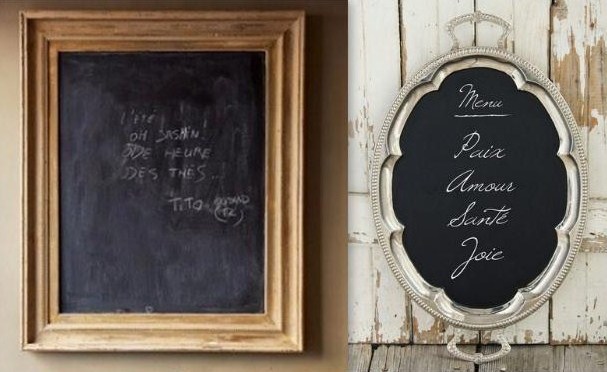 OH JASMIN
HEURE
DES THÉS...
TITO
Menu
Paix
Amour
Santé
Joie